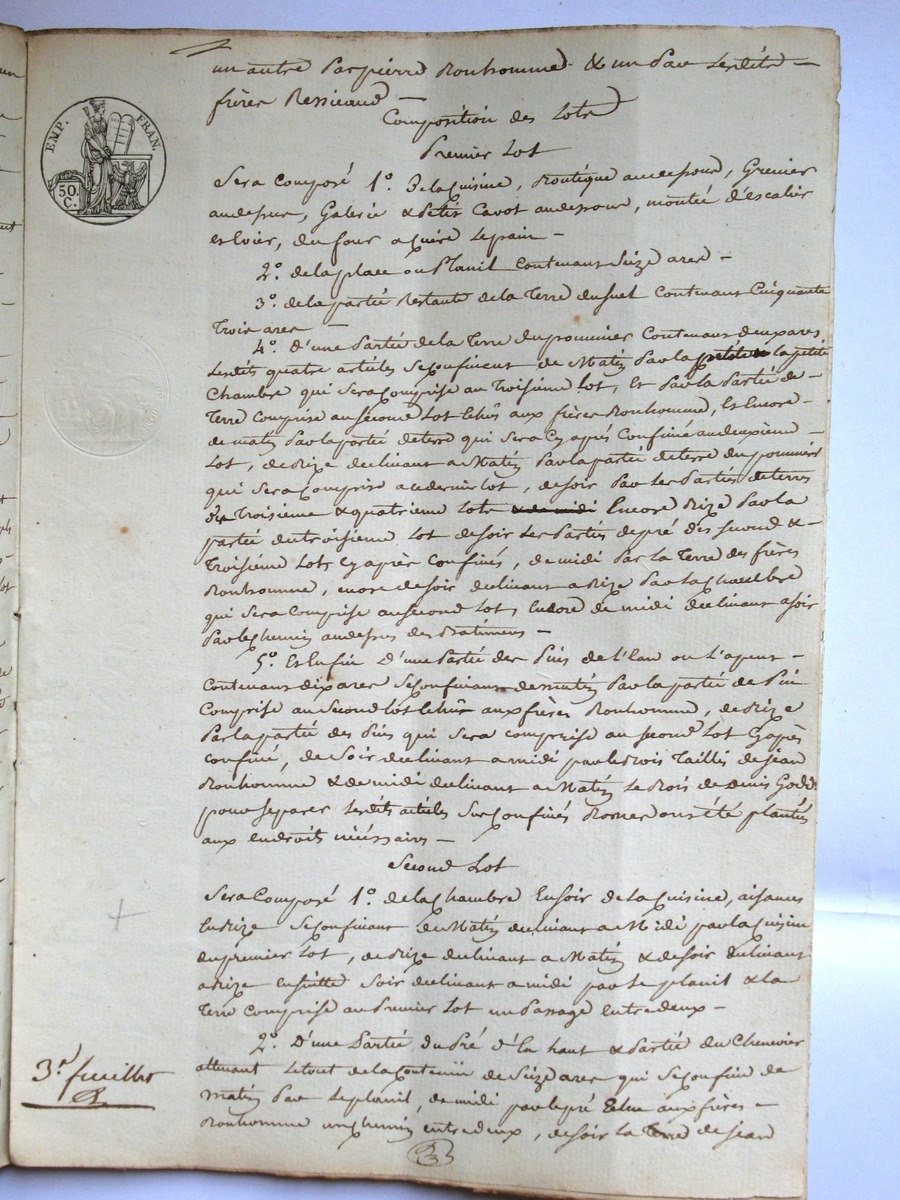 EMP. FRAN.
50. C.
un autre Par pierre Bonhomme & un Par lesdits
frères Ressicaud
Composition des Lots
Premier Lot
Sera Composé 1º. De la Cuisine, Boutique au dessous, Grenier
au dessus, Galerie & Petit Cavot au dessous, montée d'escalier
et loier, du four a Cuire le pain
2º. de la place ou Planil Contenant Seize ares
3º. de la partie Restante de la Terre du suel Contenant Cinquante
Trois ares
4º. D'une Partie de la Terre du pommier Contenant deux ares
Lesdits quatre articles Se Confinent de Matin Par la petite la petite
Chambre qui Sera Comprise au Troisième Lot, et Par la Partie de
Terre Comprise au second Lot échus aux frères Bonhomme, et Encore
de matin Par la partie de terre qui Sera Cy après Confinée au deuxieme
Lot, de Bize declinant a Matin Par la partie de terre du pommier
qui Sera Comprise au dernier lot, de soir Par les Parties de terres
de Troisieme & quatrieme Lots & de midi Encore Bize Par la
partie du troisieme Lot de soir les Parties de pré des second &
Troisième Lots Cy après Confinés, de midi Par la Terre des frères
Bonhomme, encore de soir declinant a Bize Par la Chambre
qui Sera Comprise au second Lot, Encore de midi declinant a soir
Par le Chemin au dessus des Batimens
5º. Et Enfin D'une Partie des Pins de l'Eau ou L'agent
Contenant dix ares Se Confinant de matin Par la partie de Pin
Comprise au second lot échus aux frères Bonhomme, de Bize
Par la partie des Pins qui Sera comprise au second Lot Cy après
Confiné, de Soir declinant a midi par le Bois Taillis de Jean
Bonhomme & de midi declinant a Matin le Bois de Denis Godd
pour Separer lesdits articles Sus Confinés Bornes ont été plantées
aux endroits nécessaires
Second Lot
Sera Composé 1º. de la Chambre En Soir de la Cuisine, aisances
En Bize Se Confinant de Matin declinant a Midi par la Cuisine
du premier Lot, de Bize declinant a Matin & de soir declinant
a Bize ensuitte Soir declinant a midi par le planil & la
Terre Comprise au Premier Lot un Passage entre deux
2º. D'une Partie du Pré d'la haut & Partie du Chenevier
attenant le tout de la Contenue de Seize ares qui Se Confine de
Matin Par le planil, de midi par le pré Echu aux frères
Bonhomme un Chemin entre deux, de soir la Terre de Jean
3e. feuillet